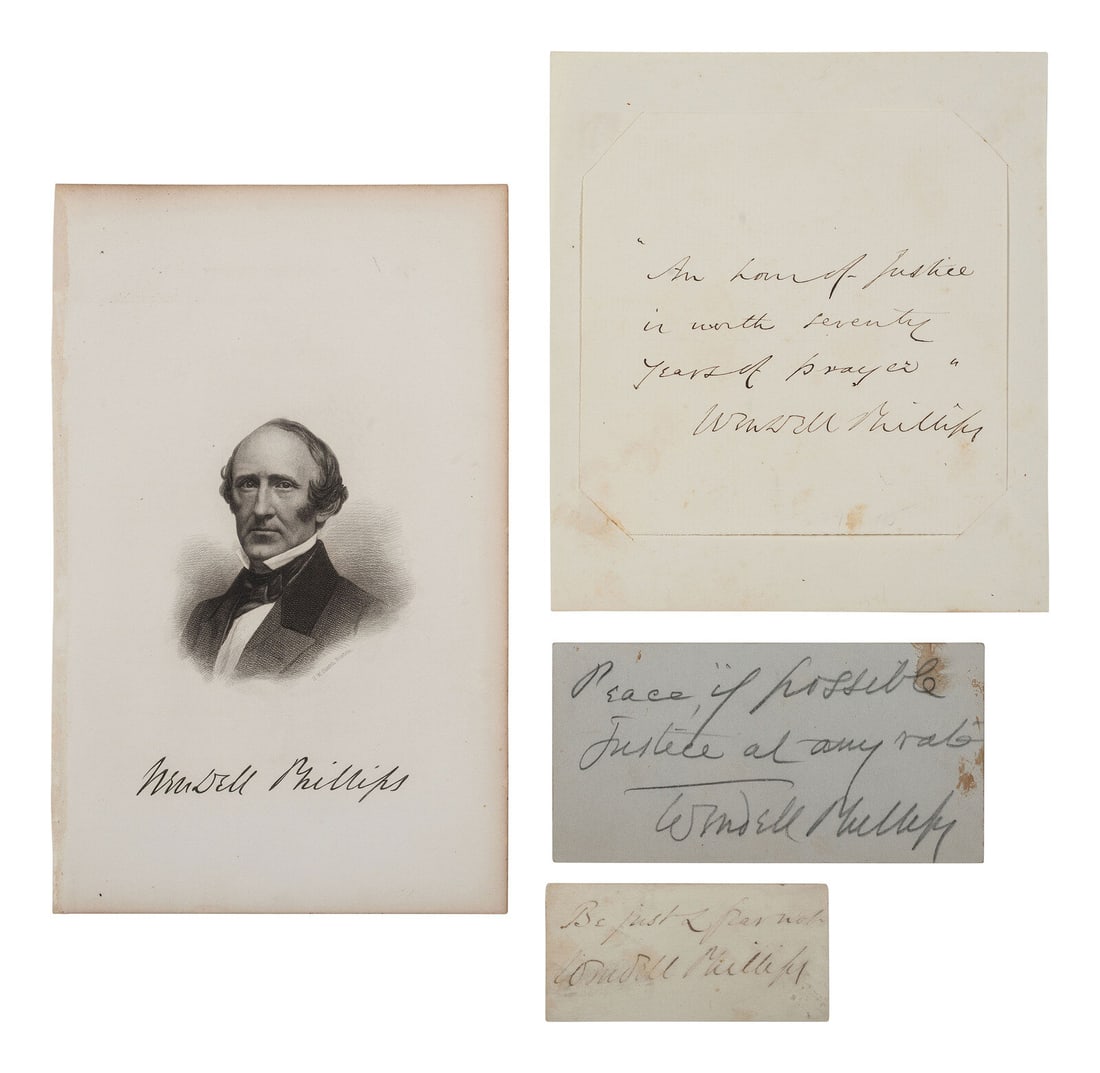 Wendell Phillips
" An hour of Justice
is worth seventy
years of prayer "
Wendell Phillips
Peace, if possible
Justice at any rate
Wendell Phillips
Be just & fear not
Wendell Phillips